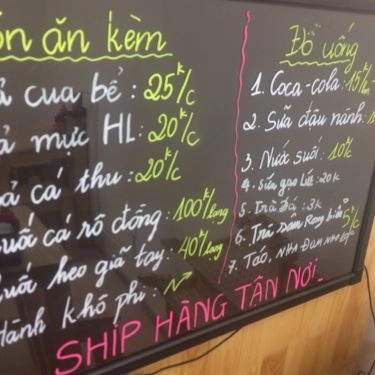 ón ăn kèm
ả cua bề : 25k/c
ả mực HL : 20k/c
ả cá thu : 20k/c
uối cá rô đồng : 100k/lạng
uối heo giã tay : 40k/lạng
Hành khô phi :
Đồ uống
1. Coca-cola : 15k/lon
2. Sữa đậu nành : 1
3. Nước suối : 10k
4. Sữa gạo lứt : 20k
5. Trà Đá : 3k
6. Trà nấm Rong biển 5k/c
7. Táo, Nha Đam
SHIP HÀNG TẬN NƠI